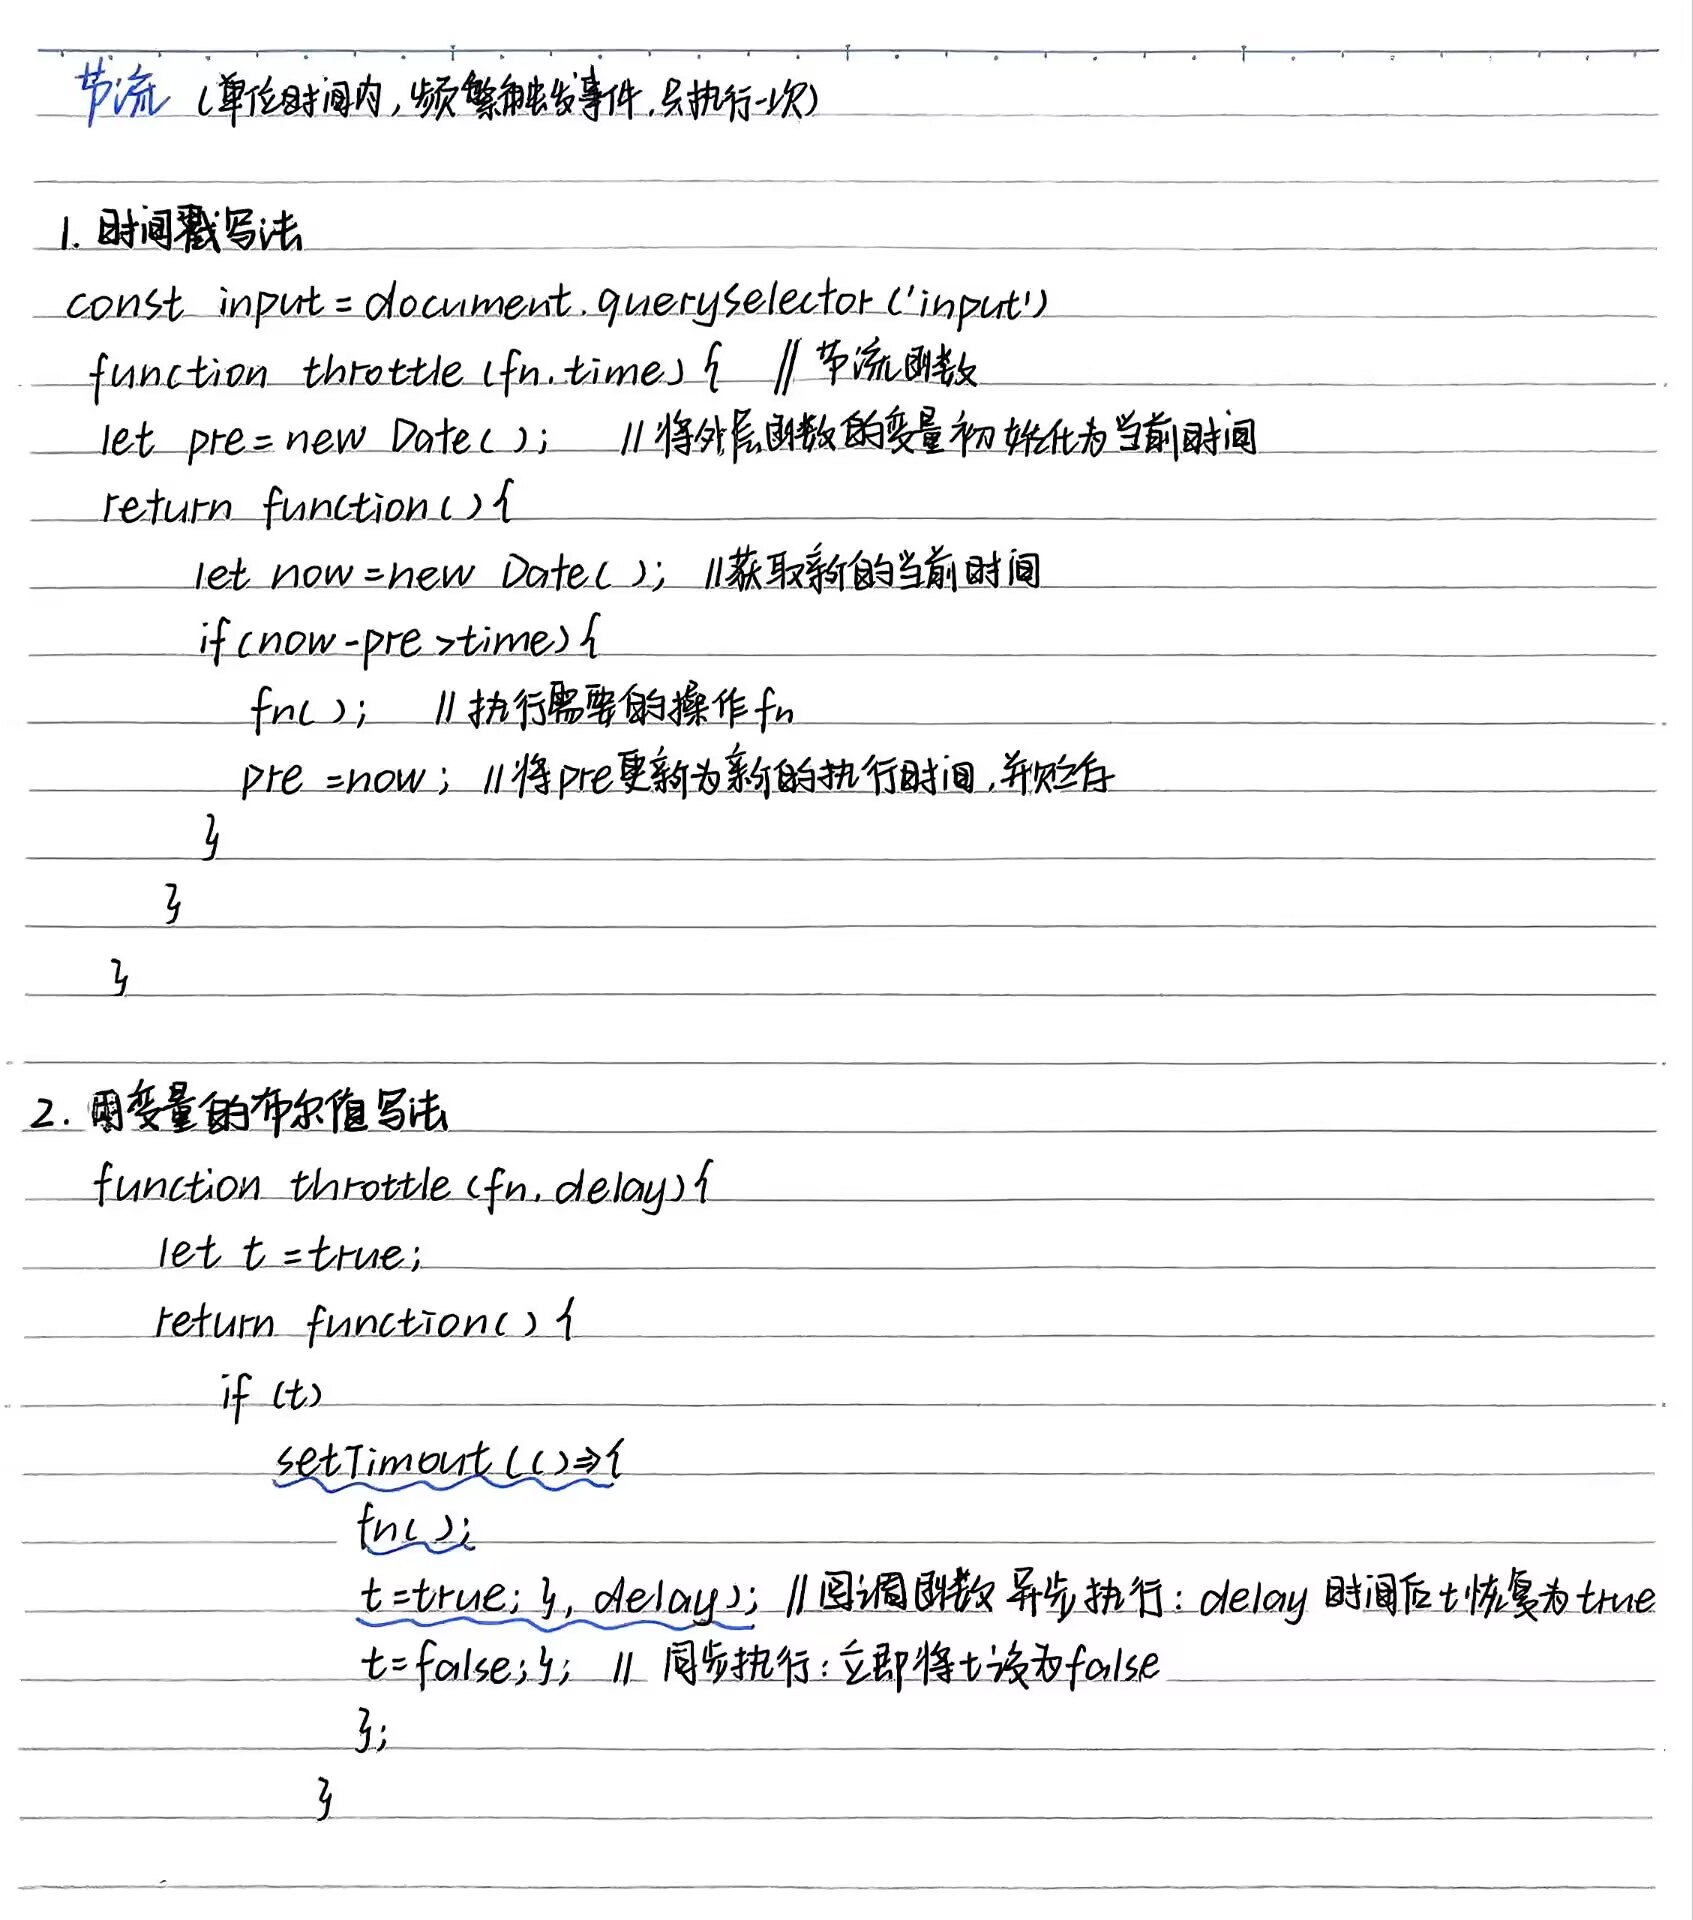 节流 (单位时间内,频繁触发事件,只执行一次)
1. 时间戳写法
const input = document.queryselector('input')
function throttle (fn, time) { // 节流函数
let pre = new Date( ); // 将外层函数的变量初始化为当前时间
return function( ) {
let now = new Date( ); // 获取新的当前时间
if (now - pre > time) {
fn( ); // 执行需要的操作 fn
pre = now; // 将pre更新为新的执行时间,并贮存
}
}
}
2. 用变量的布尔值写法
function throttle (fn, delay) {
let t = true;
return function( ) {
if (t)
setTimout (( ) => {
fn( );
t = true; }, delay); // 回调函数 异步执行: delay 时间后 t 恢复为 true
t = false; }; // 同步执行: 立即将 t 设为 false
};
}